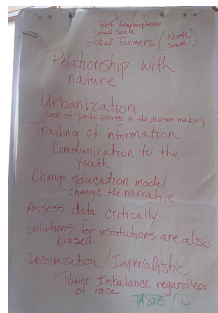 Small Scale
Global Farmers (North
South)
Relationship with
nature
Urbanization
Lack of participants in the decision making
Trading of information
Communication to the
Youth
Change education model
- change the narrative
Assess data critically
Solutions for institutions are also
biased
Decolonization / Imperialistic
Power Imbalance regardless
of race
TASTE!